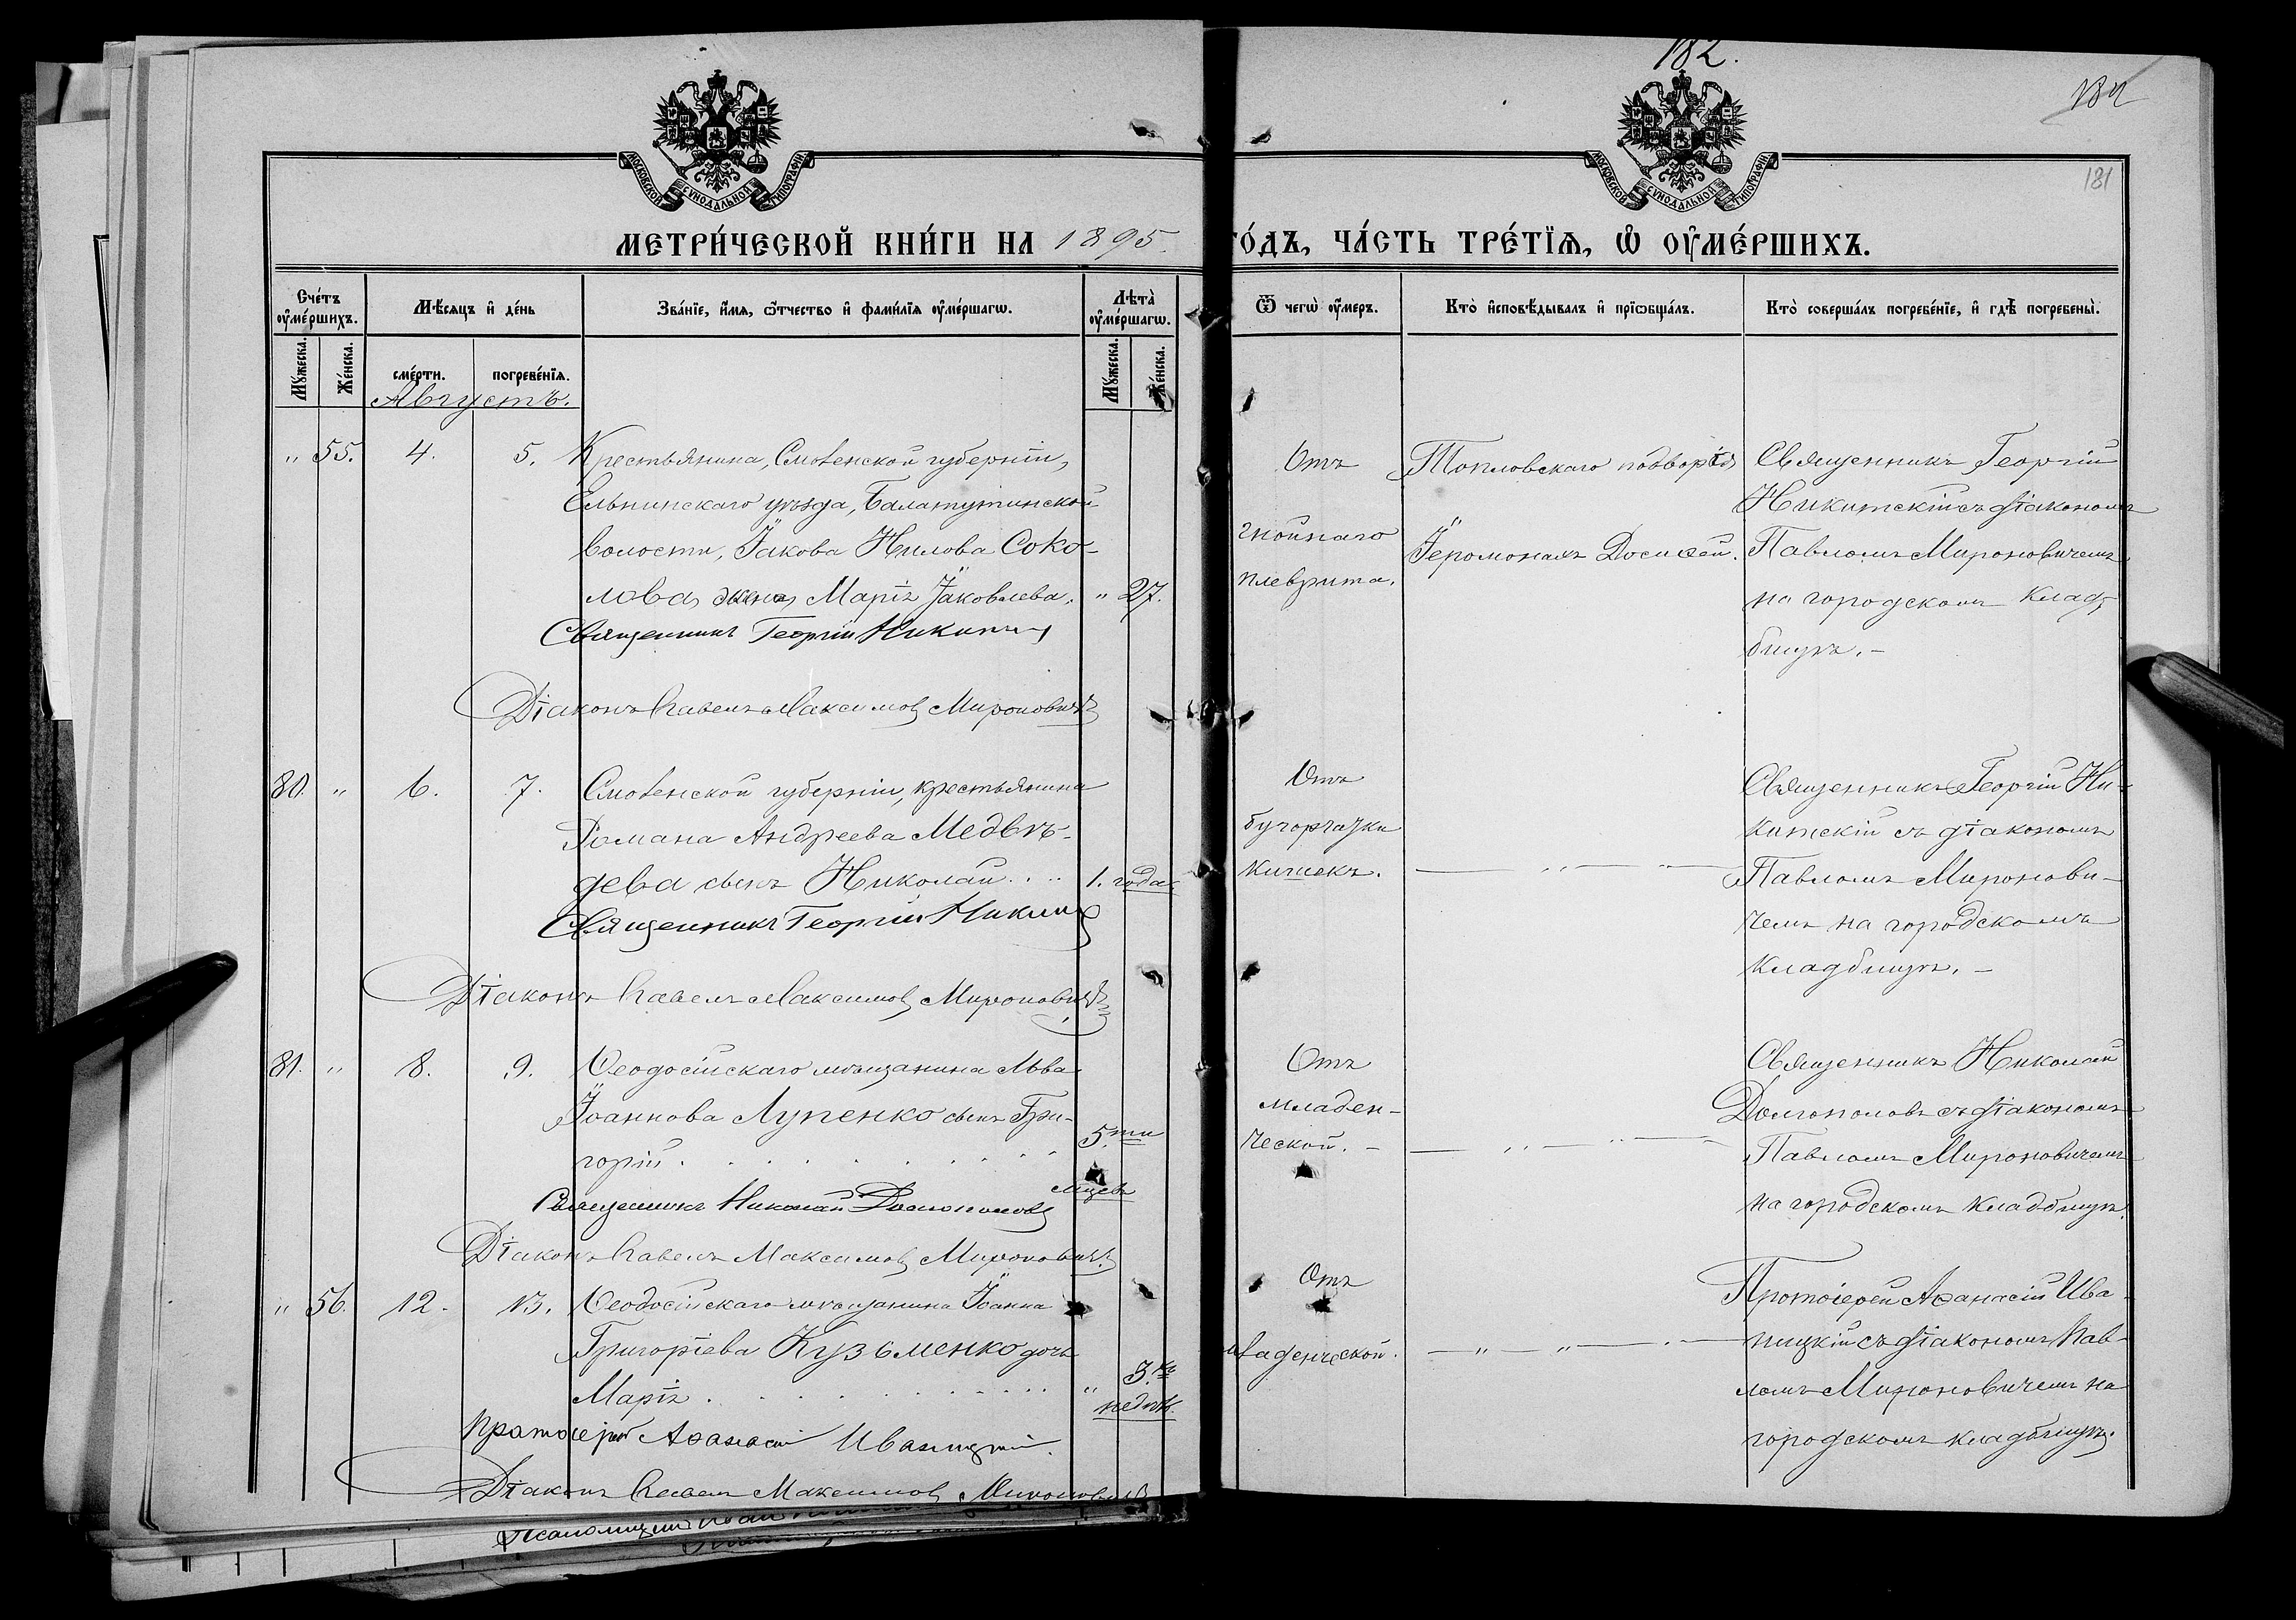 182.
184
181
МОСКОВСКОЙ СѴНОДАЛЬНОЙ ТИПОГРАФІИ
МОСКОВСКОЙ СѴНОДАЛЬНОЙ ТИПОГРАФІИ
МЕТРИ́ЧЕСКОЙ КНИ́ГИ НА 1895 ГО́ДЪ, ЧА́СТЬ ТРЕ́ТЇѦ, Ѡ҆ ОУ҆МЕ́РШИХЪ.
Сче́тъ оу҆ме́ршихъ.
Мꙋ́жеска.
Же́нска.
Мѣ́сѧцъ и҆ де́нь
сме́рти.
погребе́нїѧ.
Зва́нїе, и҆́мѧ, ѻ҆́тчество и҆ фами́лїѧ оу҆ме́ршагѡ.
Лѣ́та оу҆ме́ршагѡ.
Мꙋ́жеска.
Же́нска.
Ѿ чегѡ̀ оу҆́меръ.
Кто̀ и҆сповѣ́дывалъ и҆ прїѡбща́лъ.
Кто̀ соверша́лъ погребе́нїе, и҆ гдѣ̀ погребены̀.
Августъ.
" 55. 4. 5.
Крестьянина, Смоленской губерніи,
Ельнинскаго уѣзда, Балатутинской
волости, Іакова Нилова Соко-
лова жена Марія Іаковлева. " 27.
Священникъ Георгій Никитскій
Діаконъ Павелъ Максимовъ Мироновичъ
Отъ
гнойнаго
плеврита.
Топловскаго подворья
Іеромонахъ Досиѳей.
Священникъ Георгій
Никитскій съ діакономъ
Павломъ Мироновичемъ
на городскомъ клад-
бищѣ.-
80. " 6. 7.
Смоленской губерніи, крестьянина
Романа Андреева Медвѣ-
дева сынъ Николай . . . 1. года
Священникъ Георгій Никитскій
Діаконъ Павелъ Максимовъ Мироновичъ
Отъ
бугорчатки
кишекъ.
— " — " —
Священникъ Георгій Ни-
китскій съ діакономъ
Павломъ Миронови-
чемъ на городскомъ
кладбищѣ.-
81. " 8. 9.
Ѳеодосійскаго мѣщанина Льва
Іоаннова Лупенко сынъ Гри-
горій . . . . . . . . . 5.ти
мцевъ
Священникъ Николай Долгополовъ
Діаконъ Павелъ Максимовъ Мироновичъ
Отъ
младен-
ческой.-
— " — " —
Священникъ Николай
Долгополовъ съ діакономъ
Павломъ Мироновичемъ
на городскомъ кладбищѣ.
" 56. 12. 13.
Ѳеодосійскаго мѣщанина Іоанна
Григоріева Кузьменко дочь
Марія . . . . . . . . . " 3.хъ
недѣль.
Протоіерей Аѳанасій Иваницкій
Діаконъ Павелъ Максимовъ Мироновичъ
Отъ
младенческой.
— " — " —
Протоіерей Аѳанасій Ива-
ницкій съ діакономъ Пав-
ломъ Мироновичемъ на
городскомъ кладбищѣ.